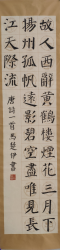 故人西辭黃鶴樓煙花三月下
揚州孤帆遠影碧空盡唯見長
江天際流
唐詩一首